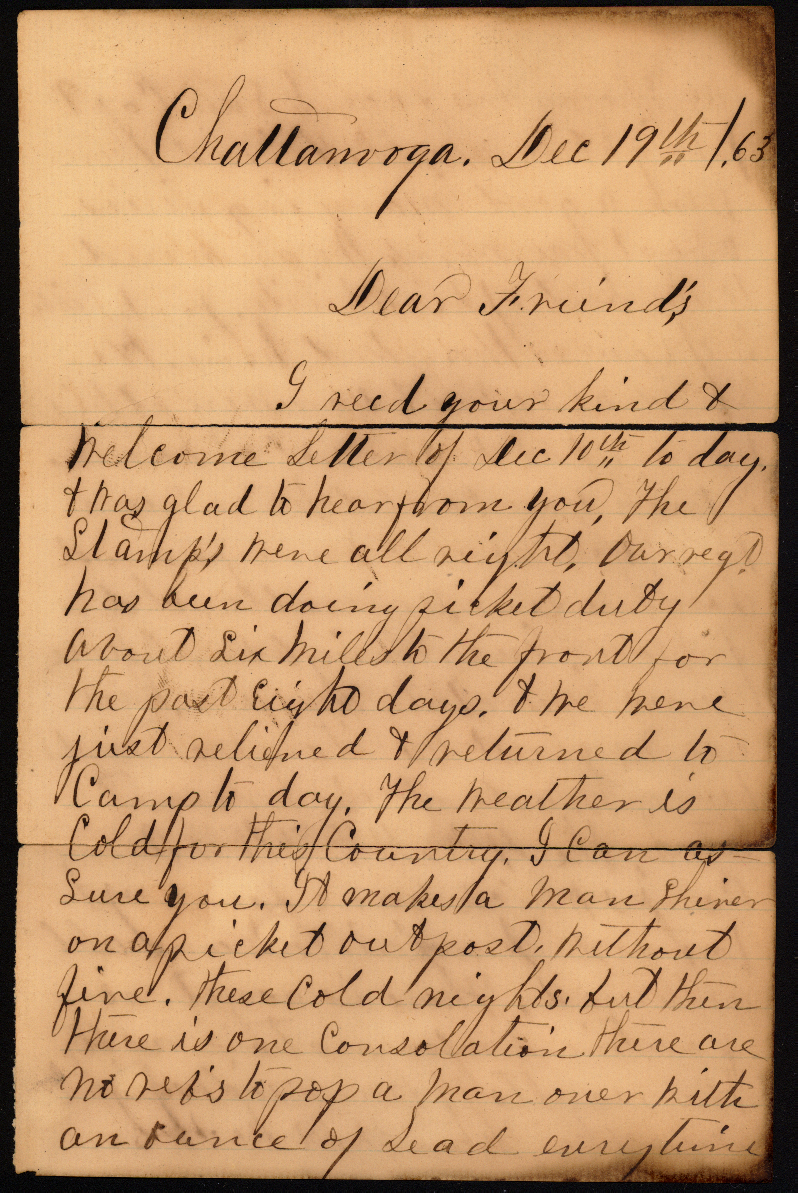 Chattanooga. Dec 19th /.63
Dear Friend's,
I recd your kind &
Welcome Letter of Dec 10th to day.
& was glad to hear from you, The
Stamp's were all right. Our regt.
has been doing picket duty
about Six Miles to the front for
the past Eight days. & we were
just relieved & returned to
Camp to day. The weather is
Cold for this Country. I Can as-
sure you. It makes a Man Shiver
on a picket outpost. Without
fire. these Cold nights. but then
there is one Consolation there are
no reb's to pop a Man over With
an ounce of Lead everytime